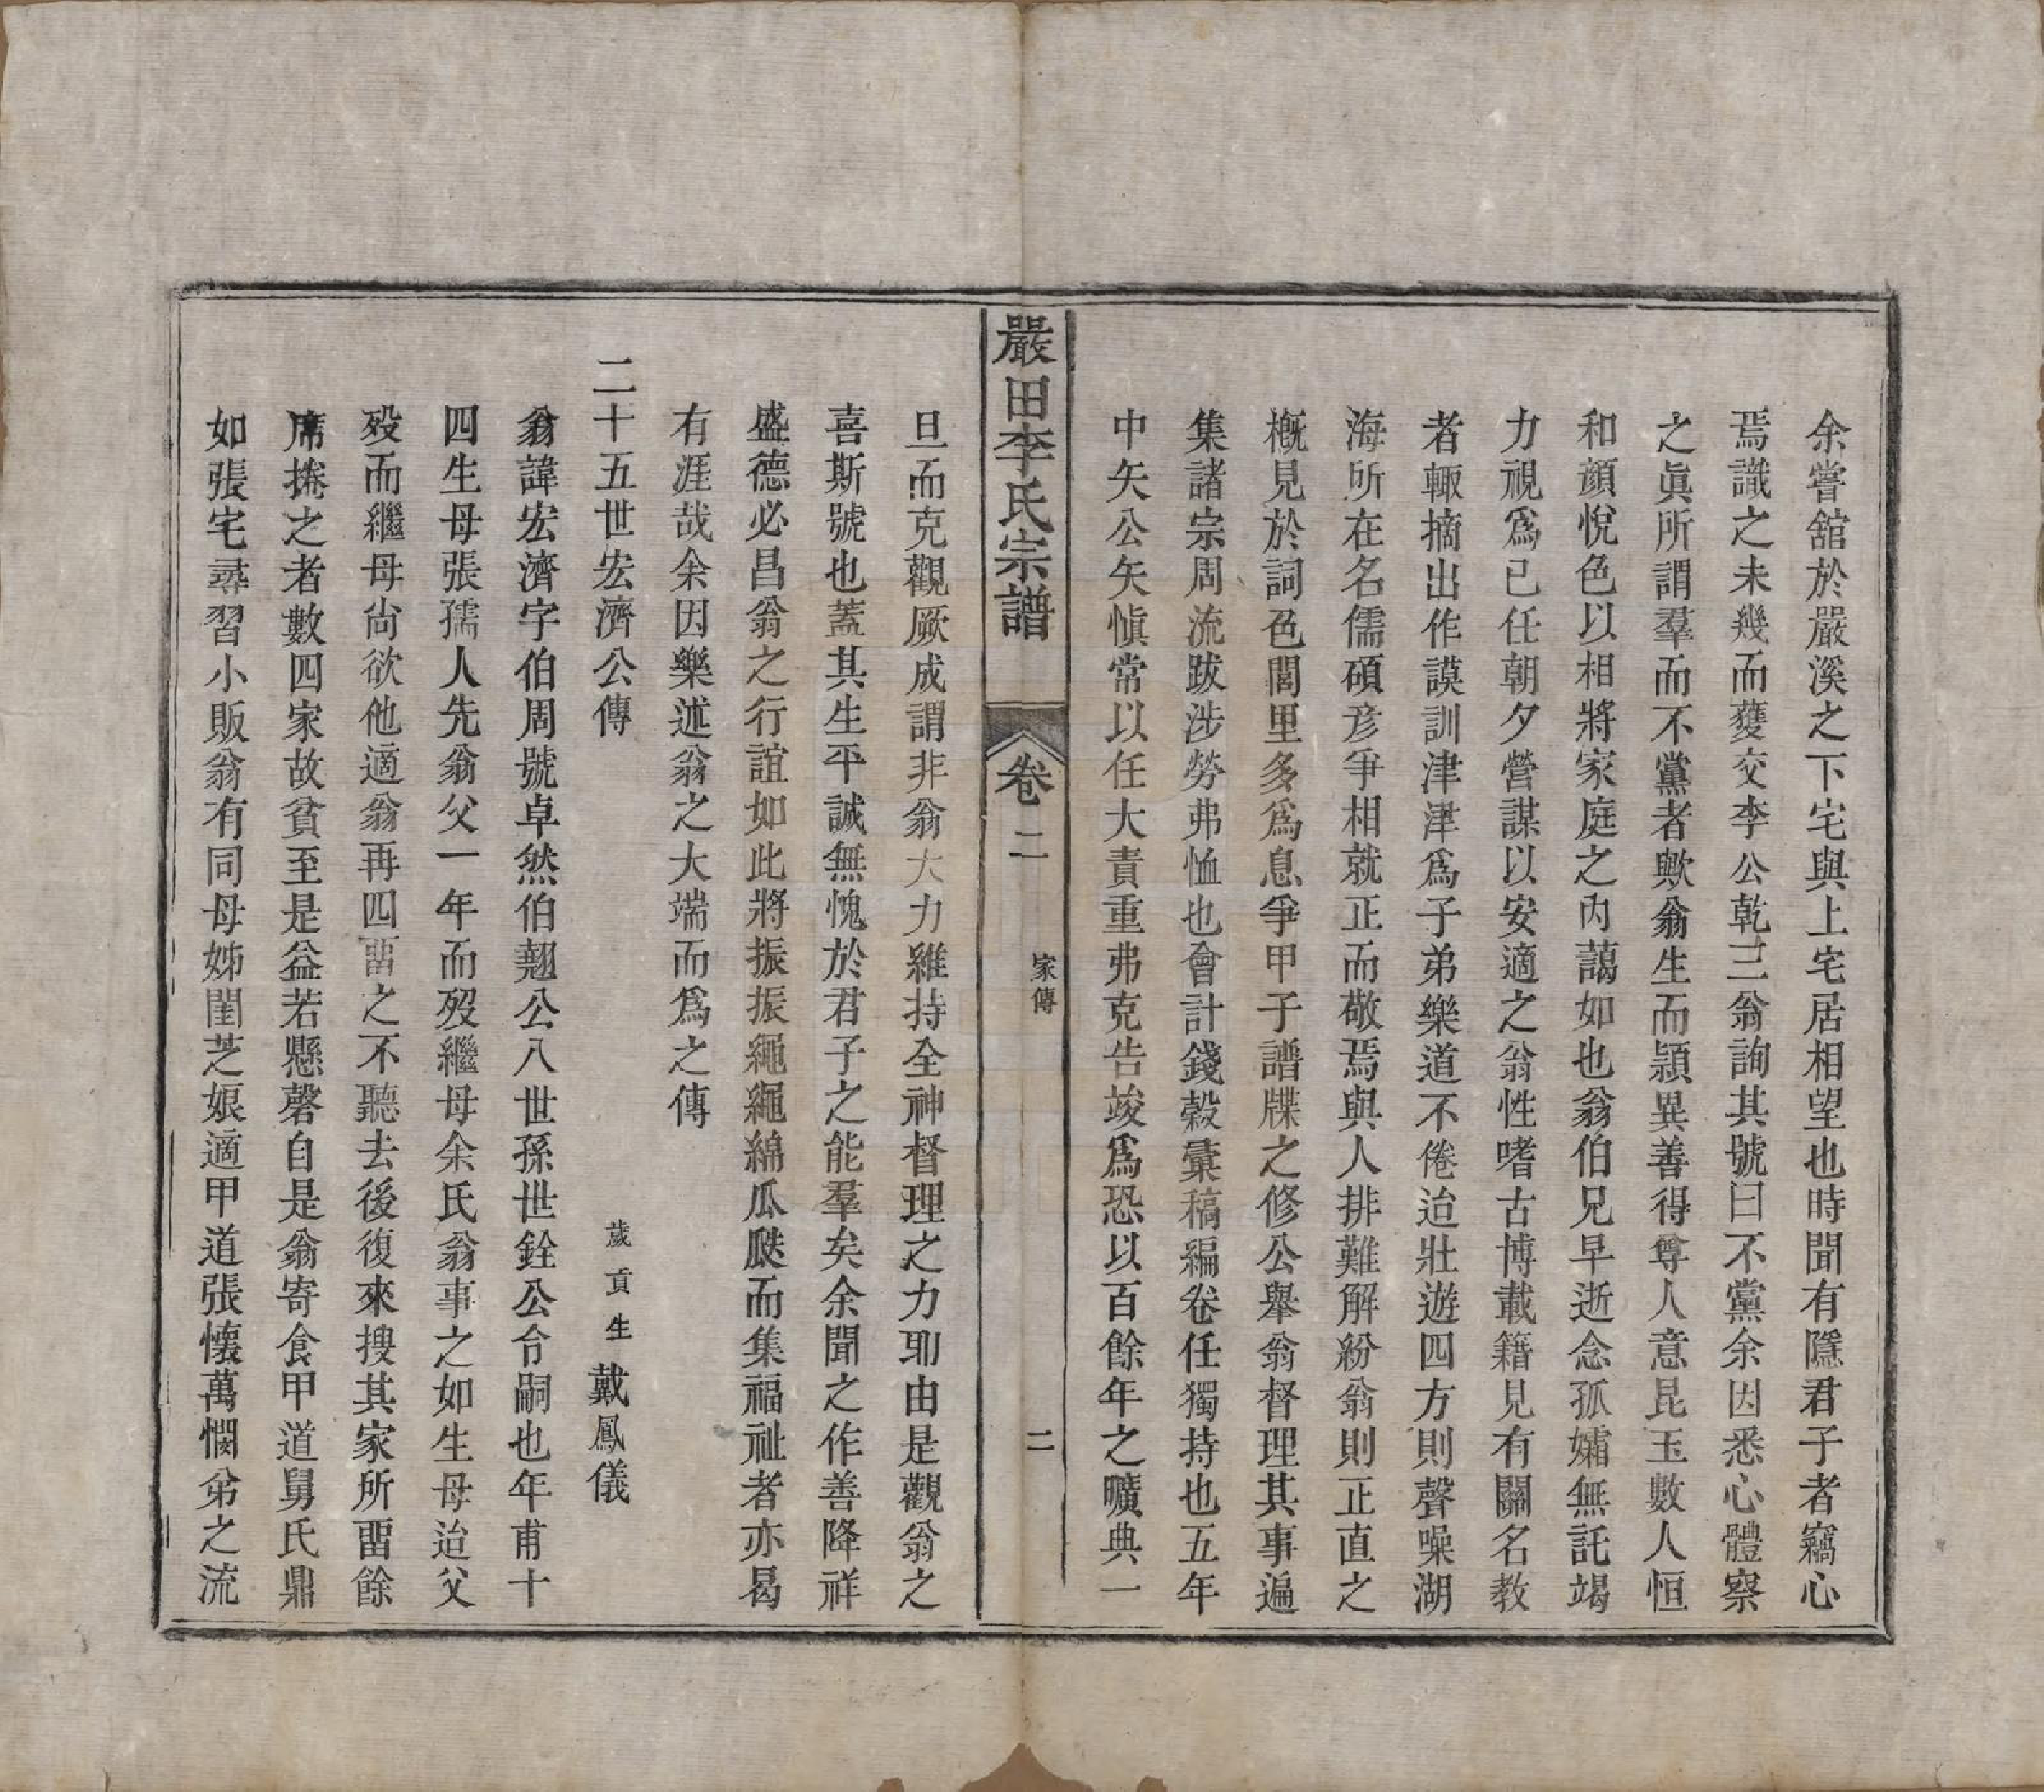 余嘗舘於嚴溪之下宅與上宅居相望也時聞有隱君子者竊心
焉識之未幾而蒦交李公乾三翁詢其號曰不黨余因悉心體察
之眞所謂羣而不黨者歟翁生而頴異善得尊人意昆玉數人恒
和顔悅色以相將家庭之內藹如也翁伯兄早逝念孤孀無託竭
力視爲己任朝夕營謀以安適之翁性嗜古博載籍見有關名教
者輙摘出作謨訓津津爲子弟樂道不倦迨壯遊四方則聲噪湖
海所在名儒碩彦爭相就正而敬焉與人排難解紛翁則正直之
概見於詞色閭里多爲息爭甲子譜牒之修公舉翁督理其事遍
集諸宗周流跋涉勞弗恤也會計錢穀彙稿編卷任獨持也五年
中矢公矢愼常以任大責重弗克告竣爲恐以百餘年之曠典一
嚴田李氏宗譜 卷二 家傳 二
旦而克觀厥成謂非翁大力維持全神督理之力耶由是觀翁之
喜斯號也蓋其生平誠無愧於君子之能羣矣余聞之作善降祥
盛德必昌翁之行誼如此將振振繩繩綿瓜瓞而集福祉者亦曷
有涯哉余因樂述翁之大端而爲之傳
二十五世宏濟公傳 歲貢生 戴鳳儀
翁諱宏濟字伯周號卓然伯翹公八世孫世銓公令嗣也年甫十
四生母張孺人先翁父一年而歿繼母余氏翁事之如生母迨父
歿而繼母尙欲他適翁再四畱之不聽去後復來搜其家所畱餘
席捲之者數四家故貧至是益若懸磬自是翁寄食甲道舅氏鼎
如張宅尋習小販翁有同母姊閨芝娘適甲道張懷萬憫弟之流